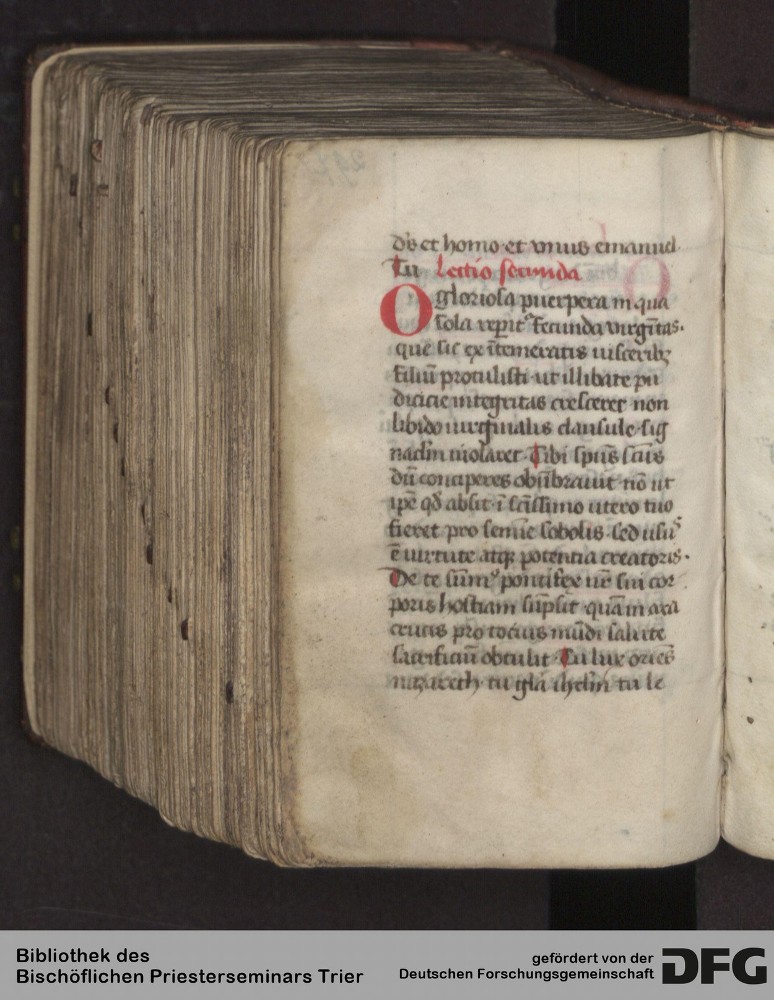 ds et homo et unius emanuel
Tu Lectio secunda
O gloriosa puerpera in qua
sola reperit fecunda virgitas.
que sic ex itemeratis uisceribz
filiu protulisti ut illibate pu
dicicie integritas cresceret non
libido uirginalis clausule sig
naclm uiolaret Tibi spus scus
du conciperes obubrauit no ut
ipe qd absit i scissimo utero tuo
fieret pro semie sobolis sed usus
e uirtute atqz potentia creatoris.
De te sum9 pontifex ue sui cor
poris hostiam supsit quam in ara
crucis pro tocius mudi salute
sacrificiu obtulit Tu lux ories
nazareth tu gla ihrlm tu le
Bibliothek des
Bischöflichen Priesterseminars Trier
gefördert von der
Deutschen Forschungsgemeinschaft
DFG